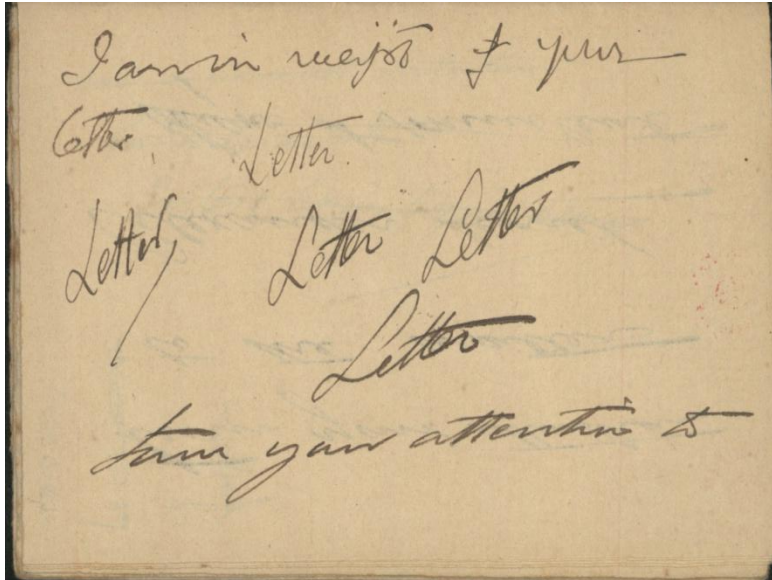 I am in receipt of your
letter, Letter
Letter, Letter Letter
Letter
turn your attention to